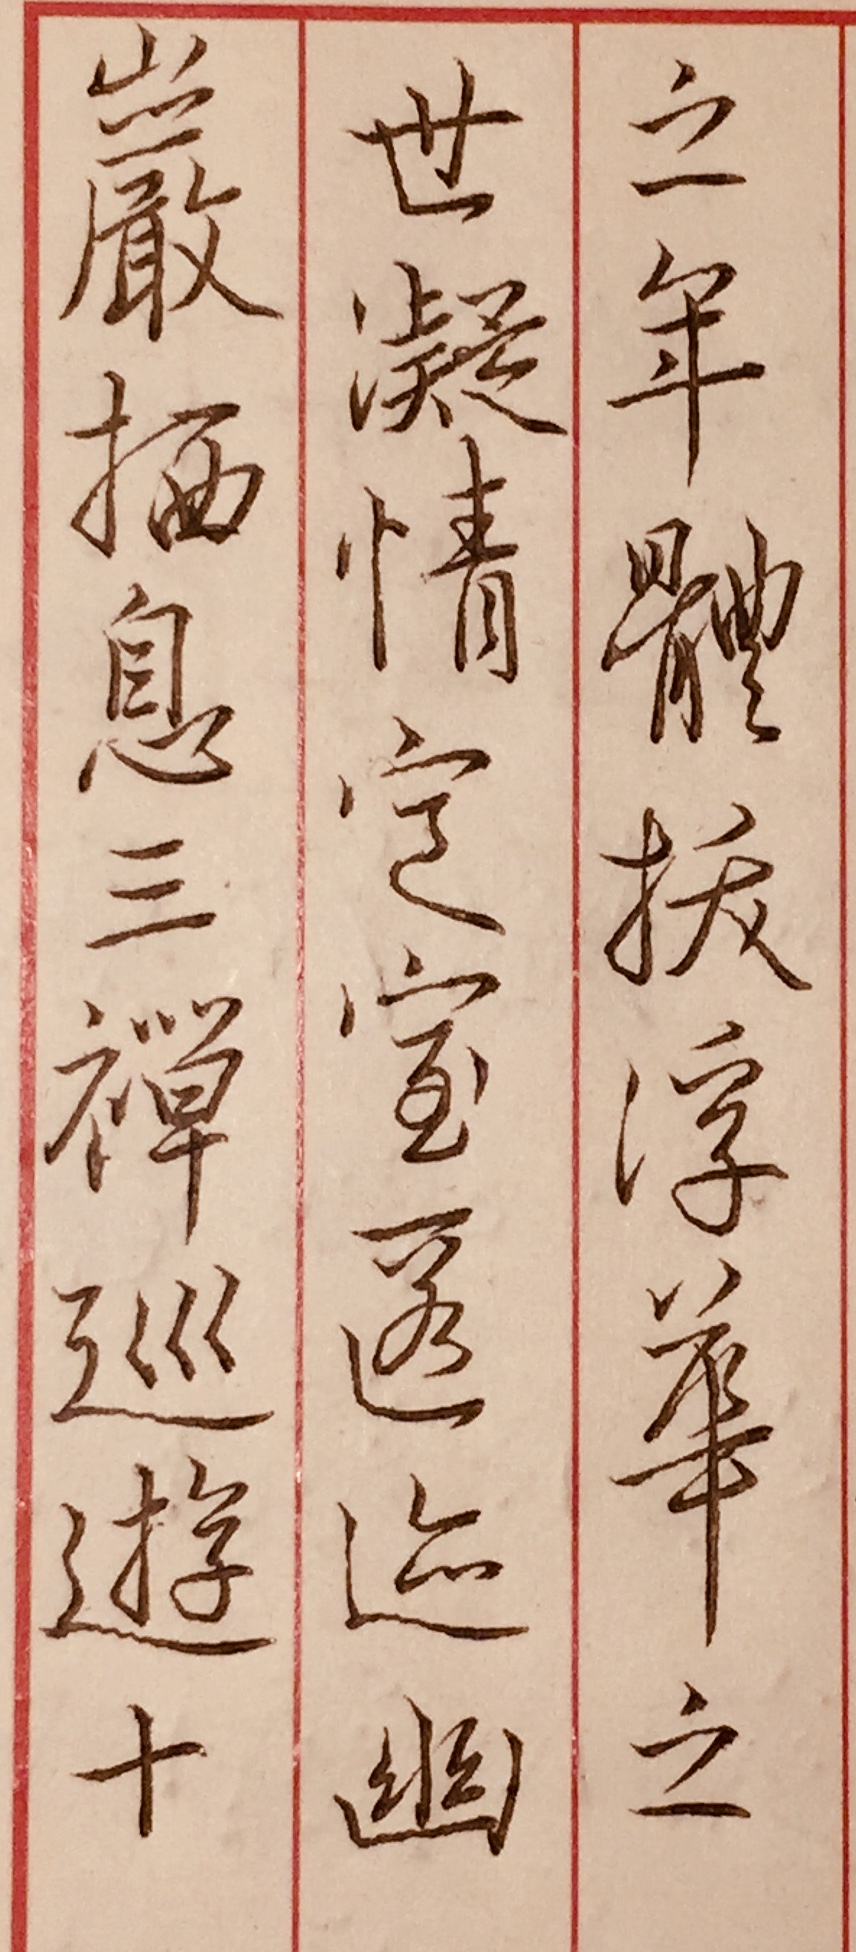 之年體拔浮華之
世凝情定室匿迹幽
巖栖息三禪巡遊十